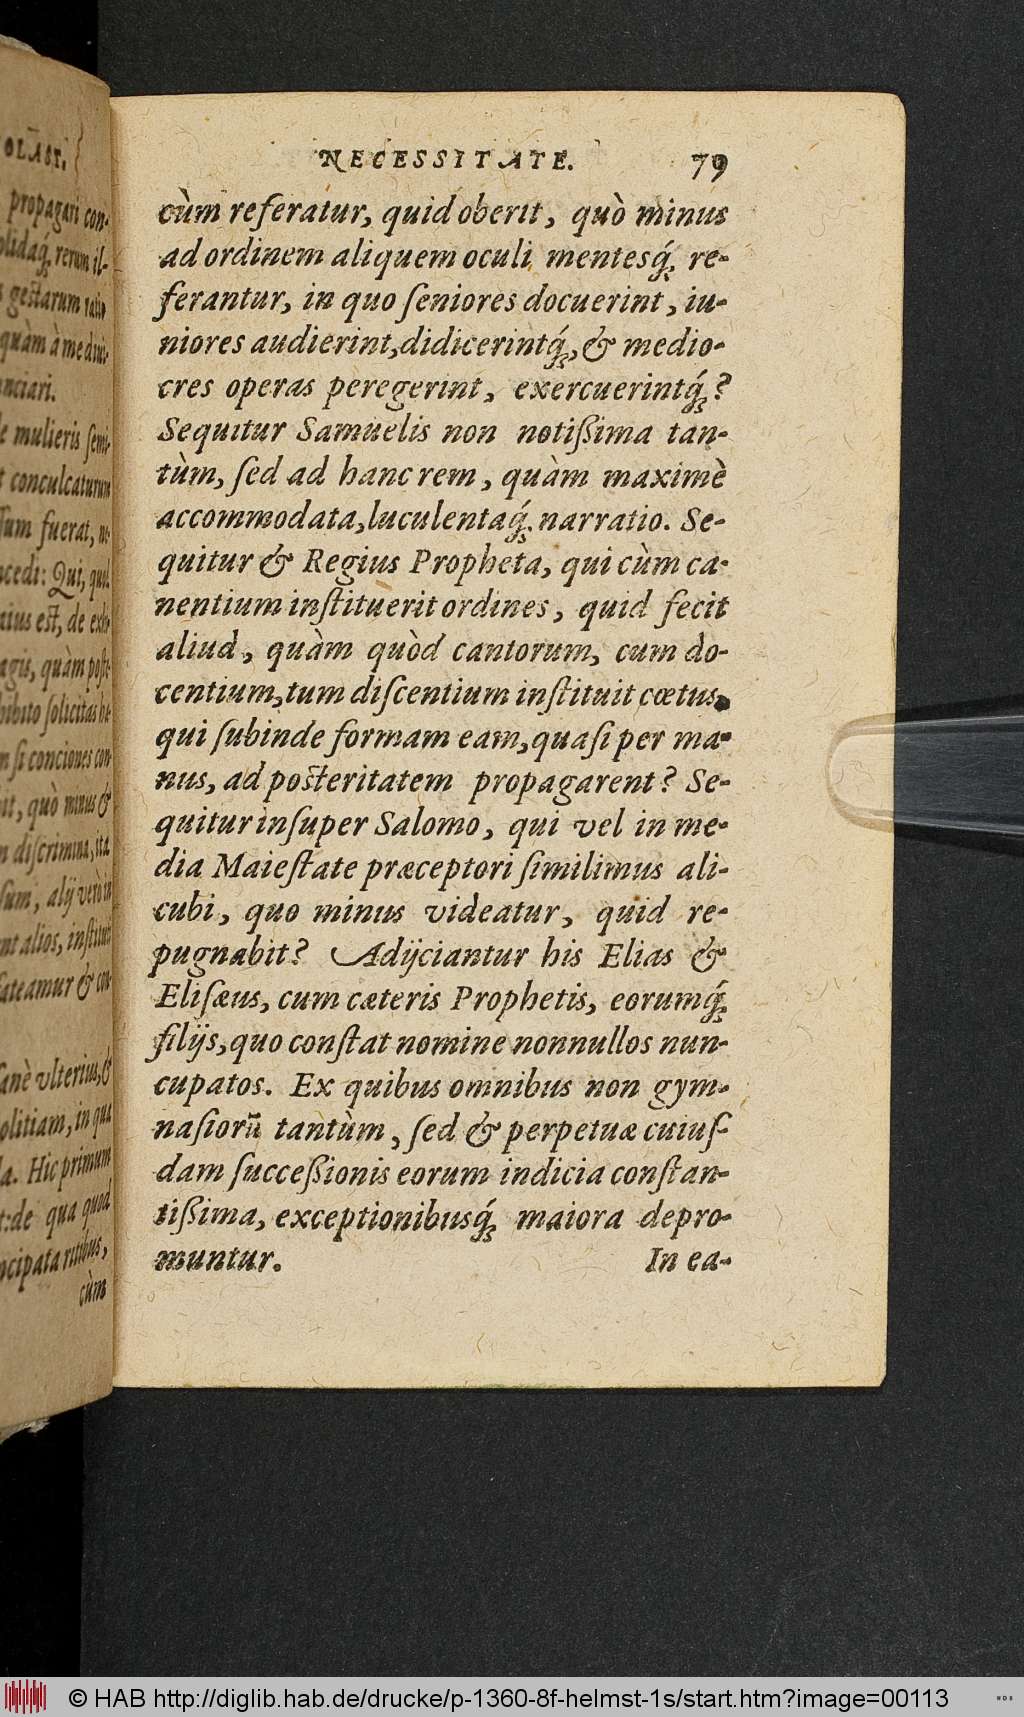 OLAST.
propagari con-
rerum il-
gestarum ratio
quàm à me dini-
nciari.
mulieris semi-
conculcaturum
fuerat,
est, de
quàm
solicitas
si conciones con-
quò minus &
discrimina, ita
alij verò in
alios, instituti
fateamur & con-
sanè vlterius, &
politiam, in qua
Hic primum
de qua quod
ritibus,
cùm
NECESSITATE. 79
cùm referatur, quid oberit, quò minus
ad ordinem aliquem oculi mentesq́; re-
ferantur, in quo ſeniores docuerint, iu-
niores audierint, didicerintq́;, & medio-
cres operas peregerint, exercuerintq́;?
Sequitur Samuelis non notißima tan-
tùm, ſed ad hanc rem, quàm maximè
accommodata, luculentaq́; narratio. Se-
quitur & Regius Propheta, qui cùm ca-
nentium inſtituerit ordines, quid fecit
aliud, quàm quòd cantorum, cum do-
centium, tum diſcentium inſtituit cœtus,
qui ſubinde formam eam, quaſi per ma-
nus, ad poſteritatem propagarent? Se-
quitur inſuper Salomo, qui vel in me-
dia Maieſtate præceptori ſimilimus ali-
cubi, quo minus videatur, quid re-
pugnabit? Adijciantur his Elias &
Eliſæus, cum cæteris Prophetis, eorumq́;
filijs, quo conſtat nomine nonnullos nun-
cupatos. Ex quibus omnibus non gym-
naſiorū tantùm, ſed & perpetuæ cuiuſ-
dam ſucceßionis eorum indicia conſtan-
tißima, exceptionibusq́; maiora depro-
muntur. In ea-
© HAB http://diglib.hab.de/drucke/p-1360-8f-helmst-1s/start.htm?image=00113